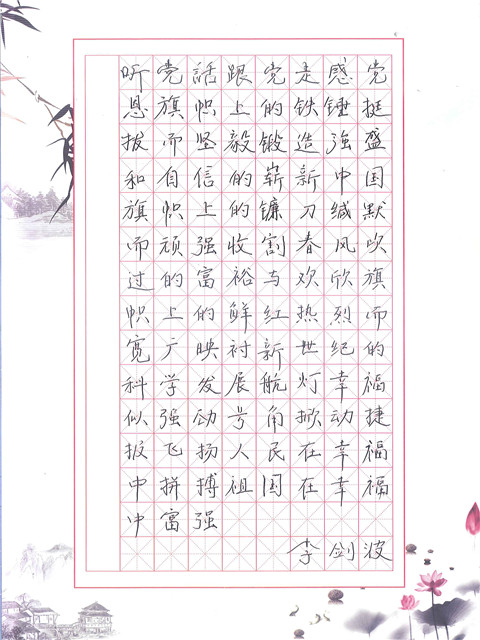 听党話跟党走感党
恩旗帜上的铁锤挺
拔而坚毅锻造强盛
和自信的崭新中国
旗帜上的镰刀缄默
而顽强收割春风吹
过的富裕与欢欣旗
帜上的鲜红热烈而
宽广映衬新世纪的
科学发展航灯幸福
似强劲号角掀动捷
报飞扬人民在幸福
中拼搏祖国在幸福
中富强
李剑波